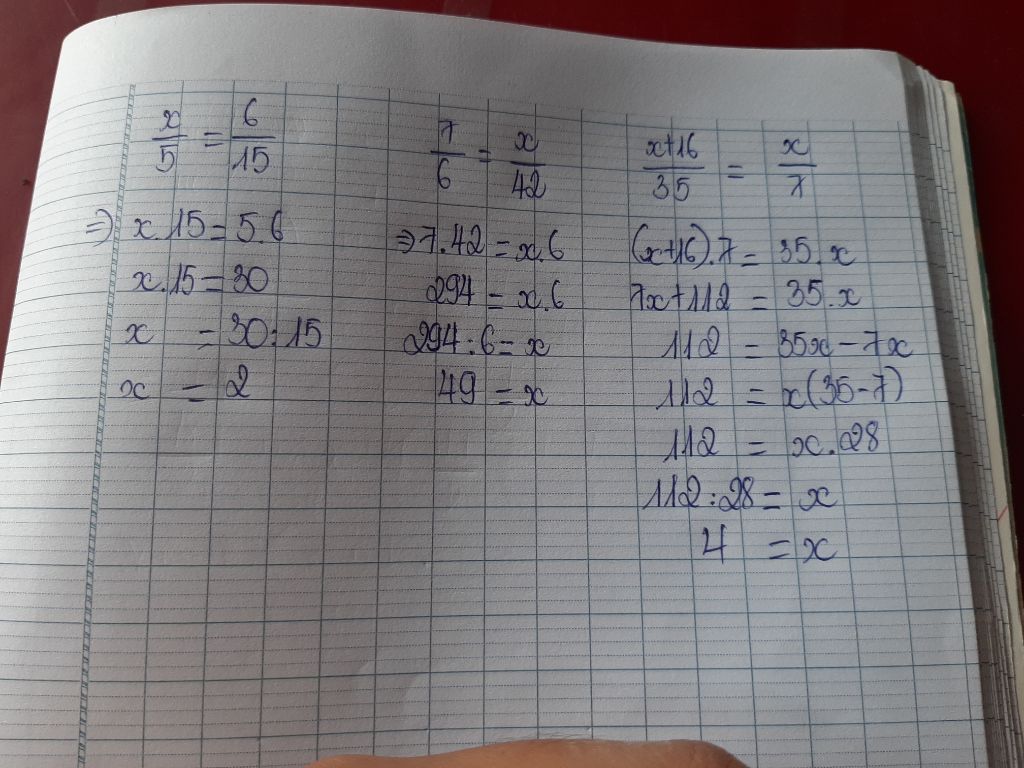 x/5 = 6/15
=> x.15 = 5.6
x.15 = 30
x = 30:15
x = 2
7/6 = x/42
=> 7.42 = x.6
294 = x.6
294:6 = x
49 = x
x+16/35 = x/7
(x+16).7 = 35.x
7x+112 = 35.x
112 = 35x - 7x
112 = x(35-7)
112 = x.28
112:28 = x
4 = x